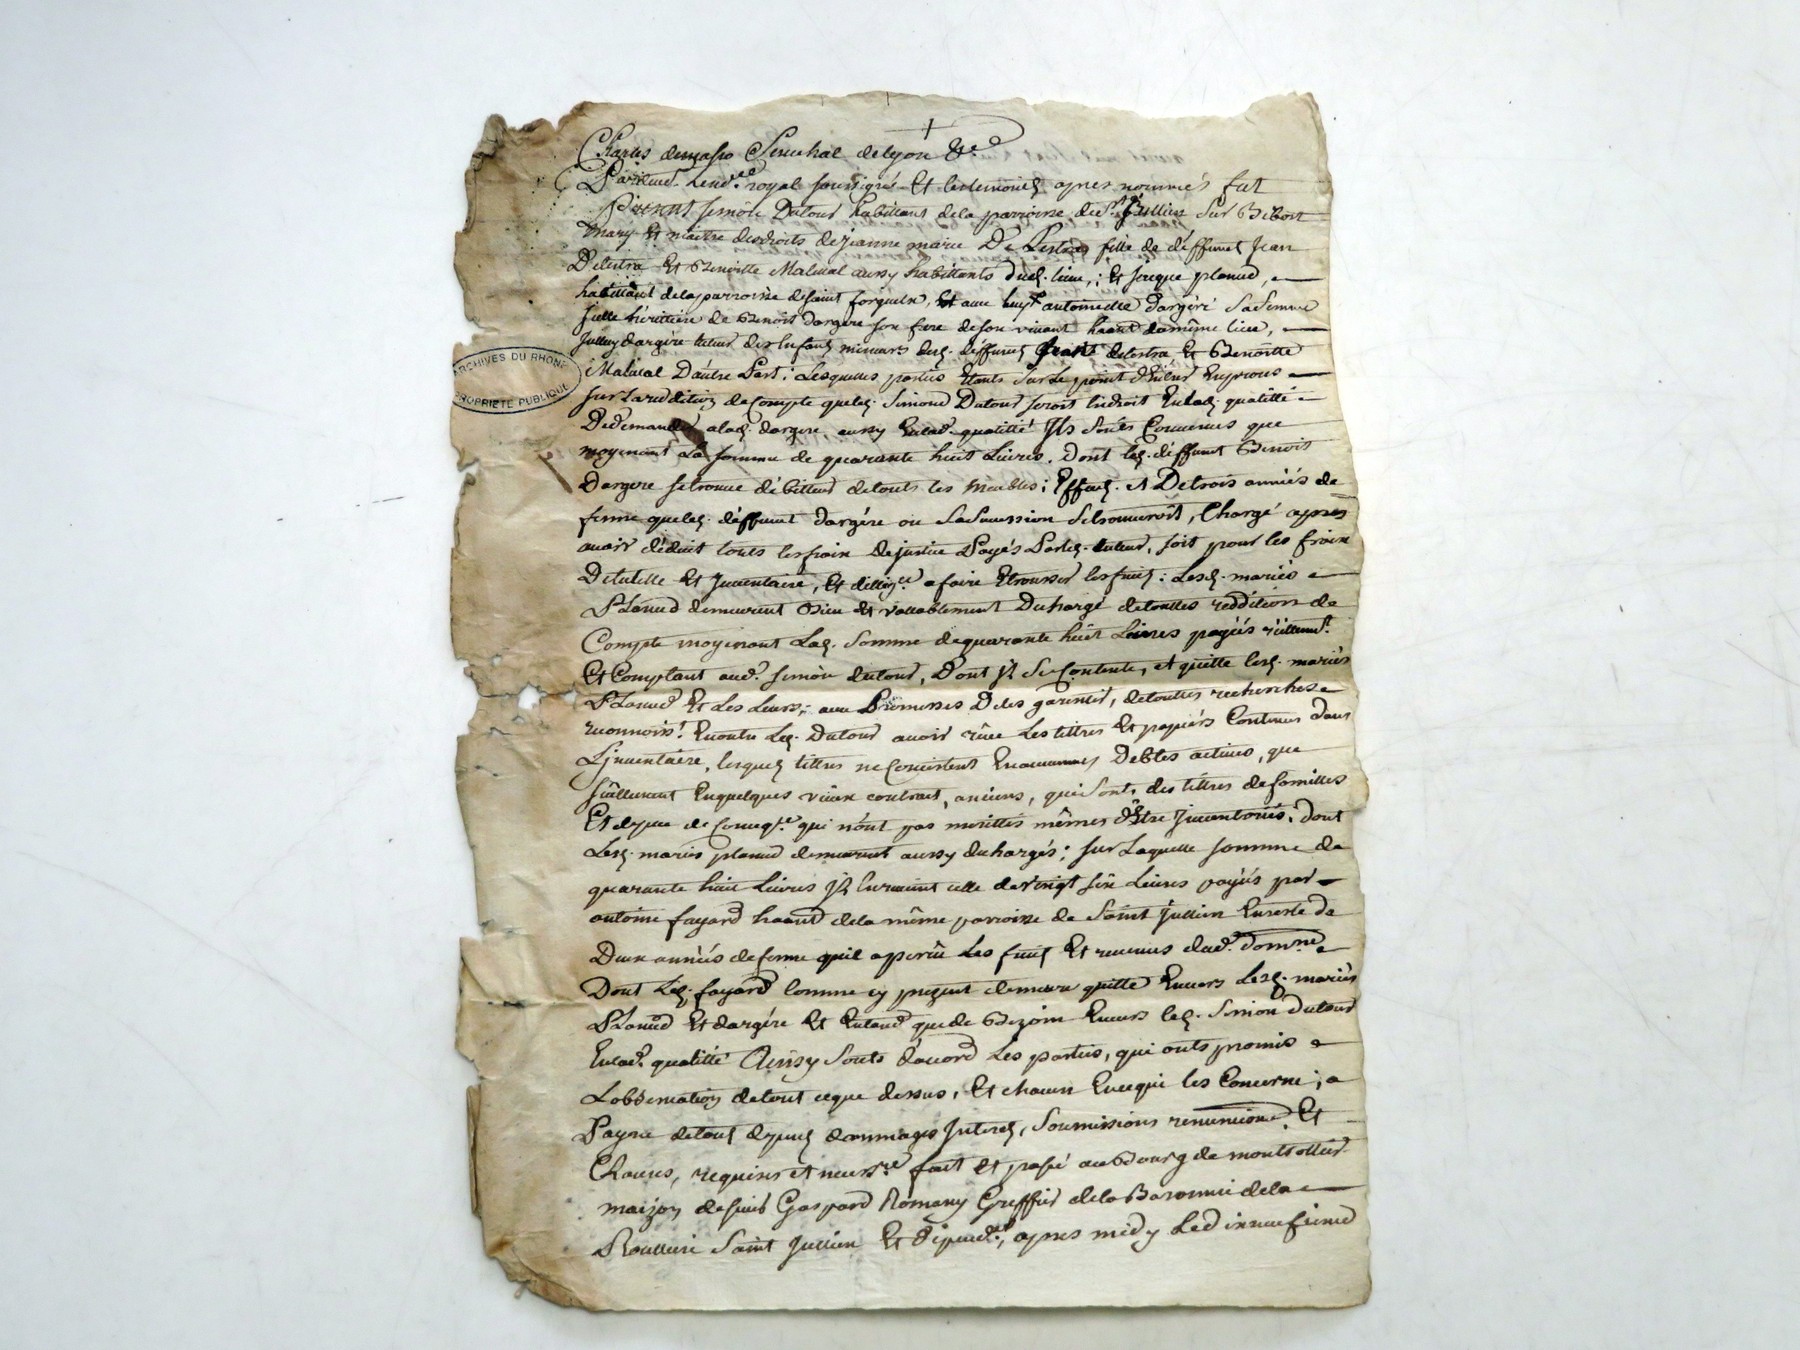 Charles demasso Senechal de Lyon &c
Pardevt. le nore. royal soussigné Et les temoins apres nommés fut
Present Simon Dutour habittant de la parroisse de St. Jullien sur Bibost
mary Et maitre des droits de jeanne marie De Lestra fille de déffunct Jean
Delestra Et Benoitte Malval aussy habittants dud. lieu; Et jacque planud,
habittant de la parroisse de saint forgueux, Et avec luy antoinette dargére sa femme
jcelle héritiere de Benoit dargere son frere de son vivant haant du même lieu,
tuteur des Enfans mineurs des. déffuncts Jean delestra Et Benoitte
Malval D'autre Part; Lesquelles parties Etants sur Le point d'Entrer En procés
sur La reddition de Compte que led. Simon Dutour seroit En droit En lad. qualitté
De demander a lad. dargere, aussy En lad. qualitté Jls sonts Convenus que
moyenant La somme de quarante huit Livres, Dont led. déffunct Benoit
Dargere se trouve débitteur de touts les Meubles; Effaits. et De trois années de
ferme que led. déffunct dargére ou sa sucession se trouveroit, Chargé apres
avoir déduit touts les fraix de justice Payés Par led. tuteur, soit pour les fraix
De tutelle Et Jnventaire, Et dilligce. a faire Etrousser les fruits: Lesd. mariés
Planud demeurent Bien Et vallablement Déchargé de touttes redditions de
Compte moyenant Lad. somme de quarante huit Livres payés réellemt.
Et Comptant aud. simon dutour, Dont jl se Contente, et quitte lesd. mariés
Planud Et Les Leurs; avec Promesses De les garentir, de touttes recherches
reconnoist. En outre Led. Dutour avoir rêcu Les tittres Et papiers Contenus dans
L'jnventaire, lesquels tittres ne Consistent En aucunnes Debtes actives, que
seullement En quelques vieux contrats, anciens, qui sont, des tittres de familles
Et de peu de Conseqce. qui n'ont pas merittés mêmes d'Estre Jnventoriés, dont
Lesd. mariés planud demeurent aussy déchargés; sur Laquelle somme de
quarante huit Livres jl Envient celle de vingt six Livres payés par
antoine fayard haant de la même parroisse de Saint Jullien En reste de
Deux années de ferme quil a perçû Les fruits Et revenus dud. domne.
Dont Led. fayard comme cy present demeure quitte Envers Lesd. mariés
Planud Et dargére Et En tand que de Bezoin Envers led. Simon dutour
En lad. qualitté Ainsy sonts d'accord Les parties, qui onts promis
L'observation de tout ce que dessus, Et chacun En ce qui les Concerne; a
Payne de touts depens dommages Jnterets, soumissions renunciond. Et
Clauses, requises et necessre. fait Et passé au Bourg de montrottier
maison de sieur Gaspard Romany Greffier de la Baronnie de la
Roulliere Saint Jullien Et dépendces., apres midy Le dixneufieme